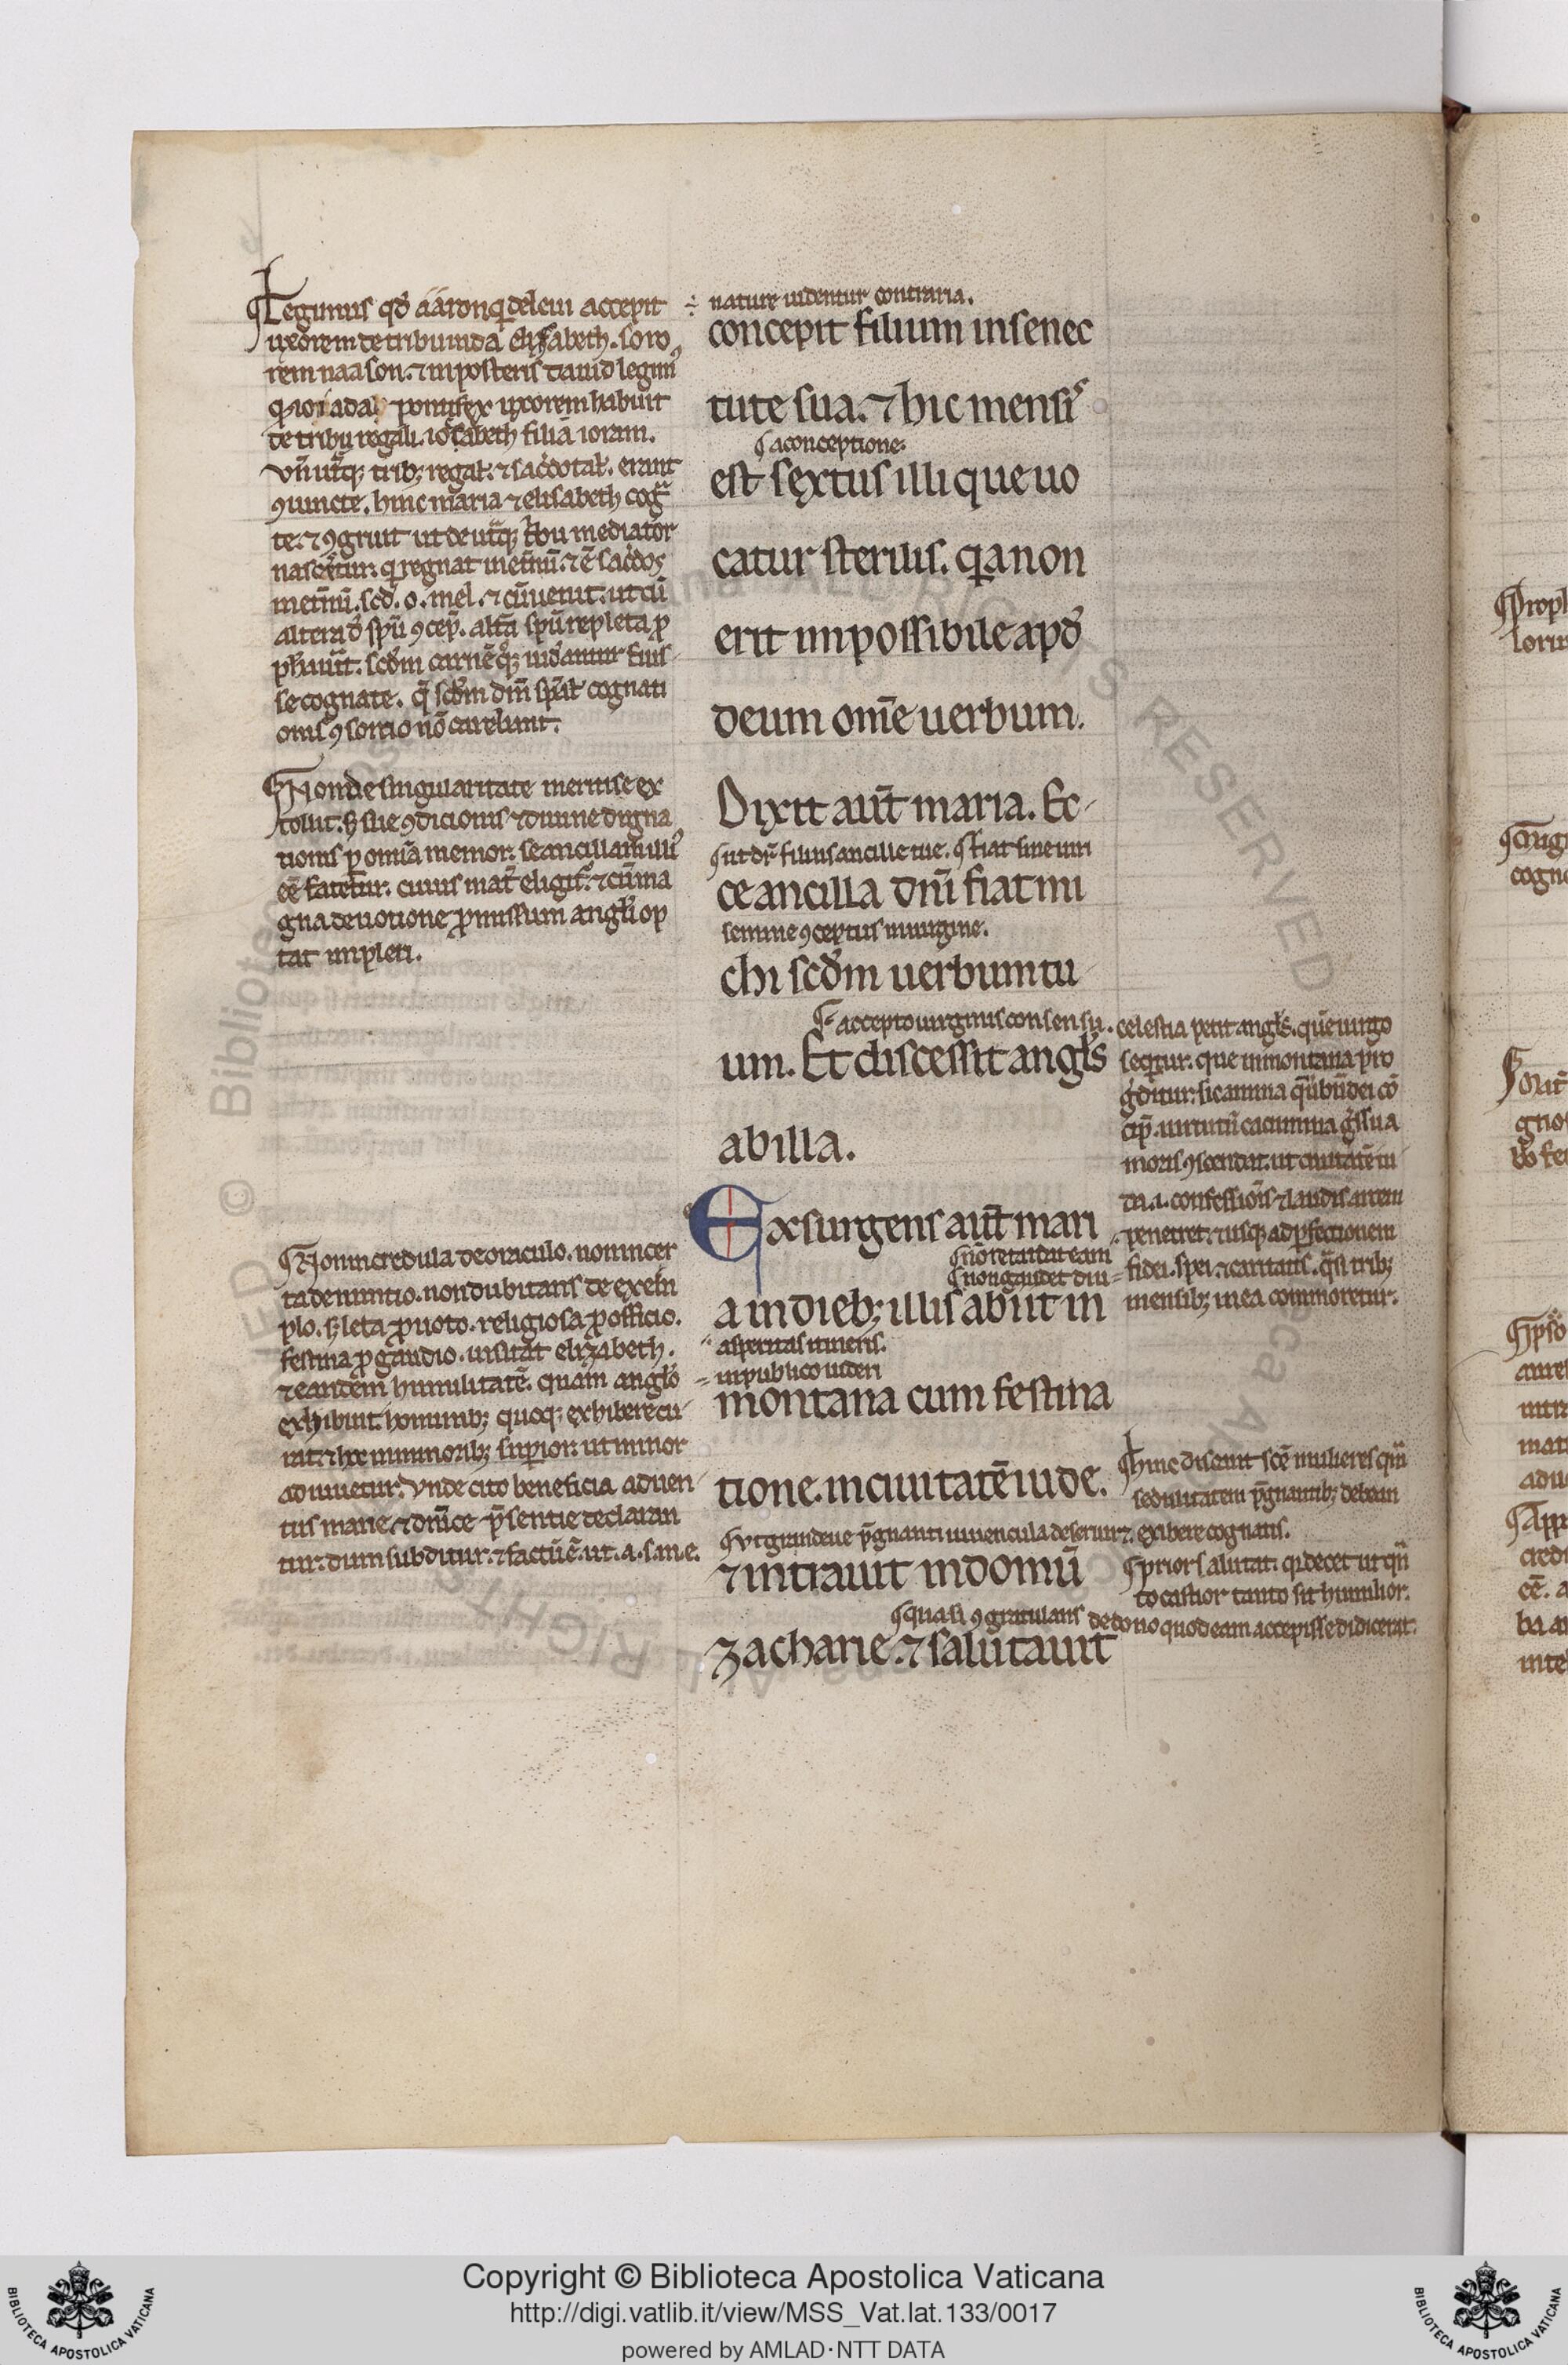 Legimus qd̄ aaron q̄ de leui accepit
uxorem de tribu iuda elisabeth. soro
rem naason. ⁊ in posteris dauid legim᷒
q̄ ioiada pontifex uxorem habuit
de tribu regali. iosabeth filiā ioram.
vn̄ utͣq; trib; regal̄. ⁊ sac̄dotal̄. erant
ꝯiuncte. hinc maria ⁊ elisabeth cogͣ
te. ⁊ ꝯgruit ut de utͣq; tͥbu mediator
nascēt̄ur. q̄ regnat inet̄nū. ⁊ ē sac̄dos
inet̄nū. scd̄. o. mel. ⁊
altera d̄ spū ꝯcep̄. alt̄a spū repleta ꝓ
ph̄auit. scd̄m carnē
se cognate. q̄ scd̄m dn̄i sp̄al̄ cognati
onis ꝯsortio nō carebunt.
Non de singularitate meriti se ex
tollit. s; sue ꝯdicionis ⁊ diuine digna
tionis ꝑ omīa memor. se ancillam illi᷒
eē fatetur. cuius mat̄ eligit᷑. ⁊ cū ma
gna deuotione ꝓmissum angl̄i op
tat impleri.
Non incredula de oraculo. non incer
ta de nuntio. non dubitans de exem
plo. s; leta ꝓ uoto. religiosa ꝓ officio.
festina ꝓ gaudio. uisitat elizabeth.
⁊ eandem humilitatē. quam angl̄o
exhibuit. hominib; quoq; exhibere cu
rat. ⁊ hec minorib; suꝑior. ut minor
adiuuetur. vnde cito beneficia aduen
tus marie. ⁊ dn̄ice p̄sentie declaran
tur. dum subditur. ⁊ factū ē. ut. a. s. m. e.
÷ nature uidentur contraria.
concepit filium in senec
tute sua. ⁊ hic mensis
a conceptione.
est sextus illi que uo
catur sterilis. q̄a non
erit impossibile apd̄
deum om̄e uerbum.
Dixit aut̄ maria. Ec-
ut dr̄ filius ancille tue. fiat sine uiri
ce ancilla dn̄i fiat mi
semine ꝯceptus in uirgine.
chi scd̄m uerbum tu
accepto uirginis consensu.
um. Et discessit angl̄s
ab illa.
Exsurgens aut̄ mari
nō retardat eam
non gaudet diu =
a in dieb; illis abiit in
asperitas itineris.
= in publico uideri
montana cum festina
tione. in ciuitatē iude.
Vt grandeue p̄gnanti iuuencula deseruiret.
⁊ intrauit in domū
quasi ꝯgratulans de dono quod eam accepisse didicerat.
zacharie. ⁊ salutauit
celestia petit angl̄s. quē uirgo
seq̄tur. que in montana pro
g̊ditur. sic anima
cip̄. uirtutū cacumina
moris ꝯscendit. ut ciuitatē iu
da .i. confessiōis ⁊ laudis arcem
penetret. ⁊ usq; ad ꝑfectionem
fidei. spei. ⁊ caritatis. q̄si trib;
mensib; in ea commoretur.
Hinc discant scē mulieres q̄m
sedulitatem p̄gnantib; debeant
exibere cognatis.
prior salutat. q̄ decet ut q̄n
to castior tanto sit humilior.
Copyright © Biblioteca Apostolica Vaticana
http://digi.vatlib.it/view/MSS_Vat.lat.133/0017
powered by AMLAD·NTT DATA